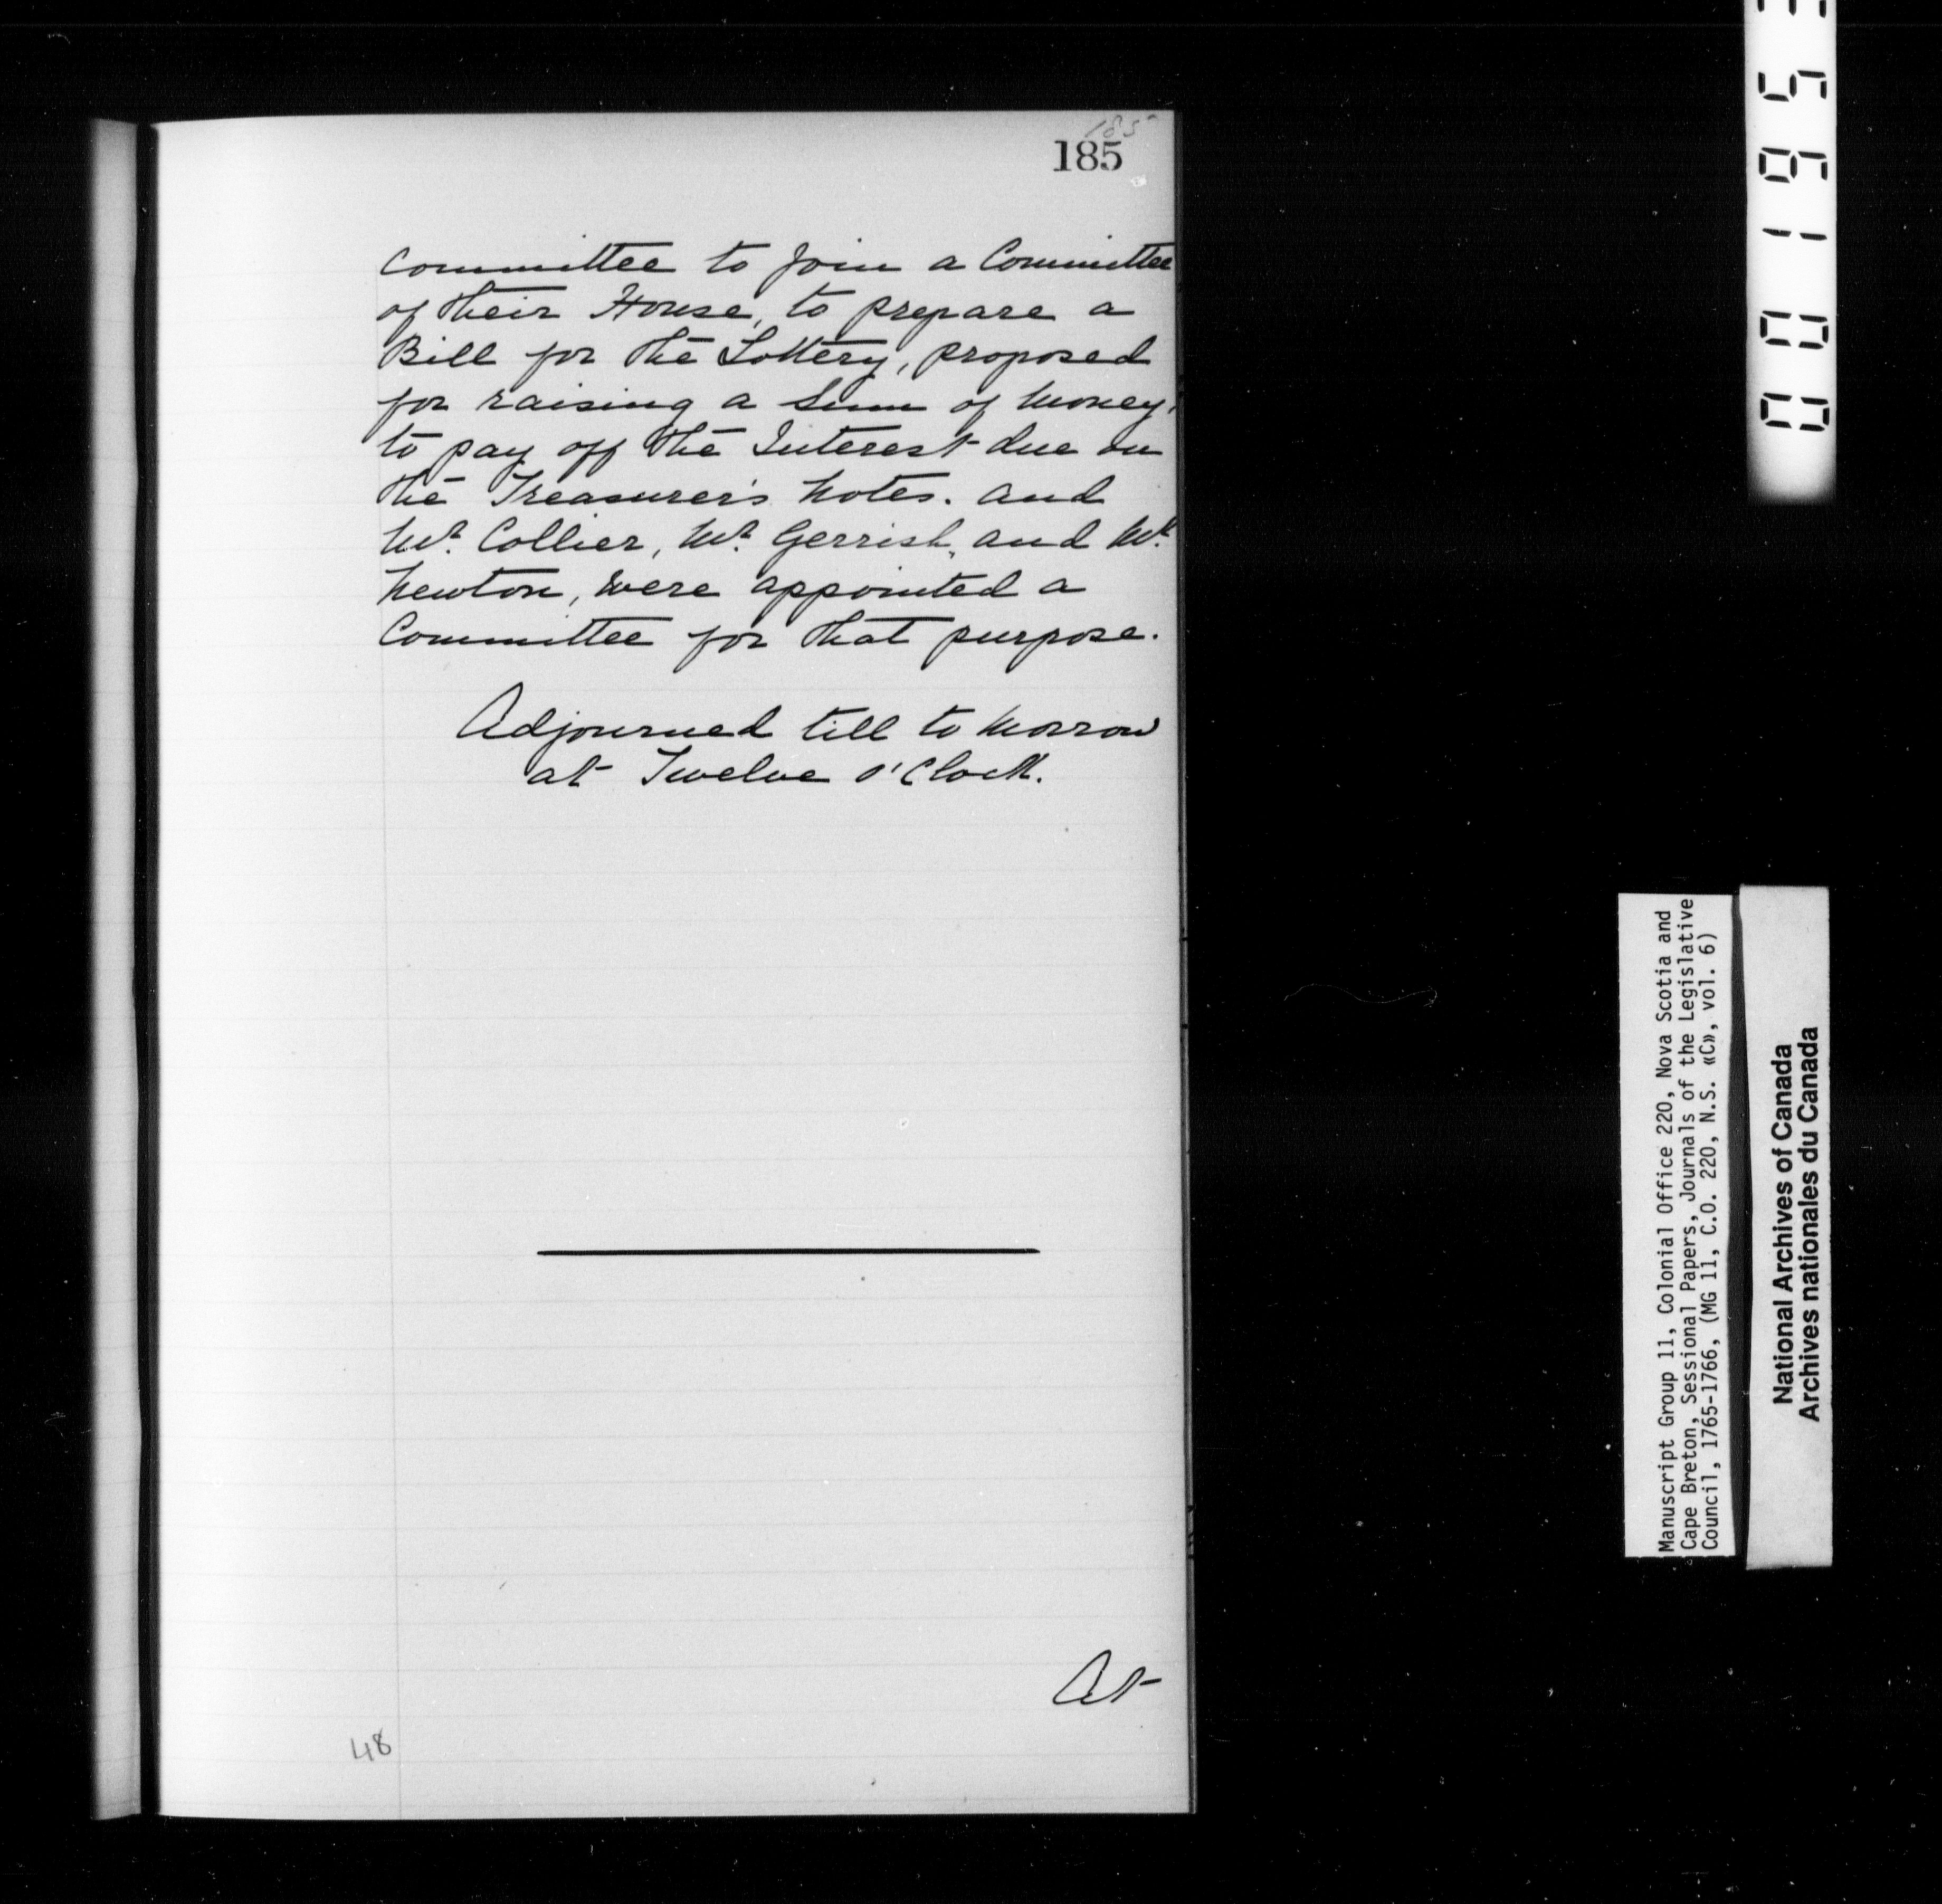 185
185
Committee to Join a Committee
of their House, to prepare a
Bill for the Lottery, proposed
for raising a Sum of Money,
to pay off the Interest due on
the Treasurer's Notes. and
Mr. Collier, Mr. Gerrish, and Mr.
Newton, were appointed a
Committee for that purpose.
Adjourned till to Morrow
at Twelve o'Clock.
At
48
Manuscript Group 11, Colonial Office 220, Nova Scotia and
Cape Breton, Sessional Papers, Journals of the Legislative
Council, 1765-1766, (MG 11, C.O. 220, N.S. «C», vol. 6)
National Archives of Canada
Archives nationales du Canada